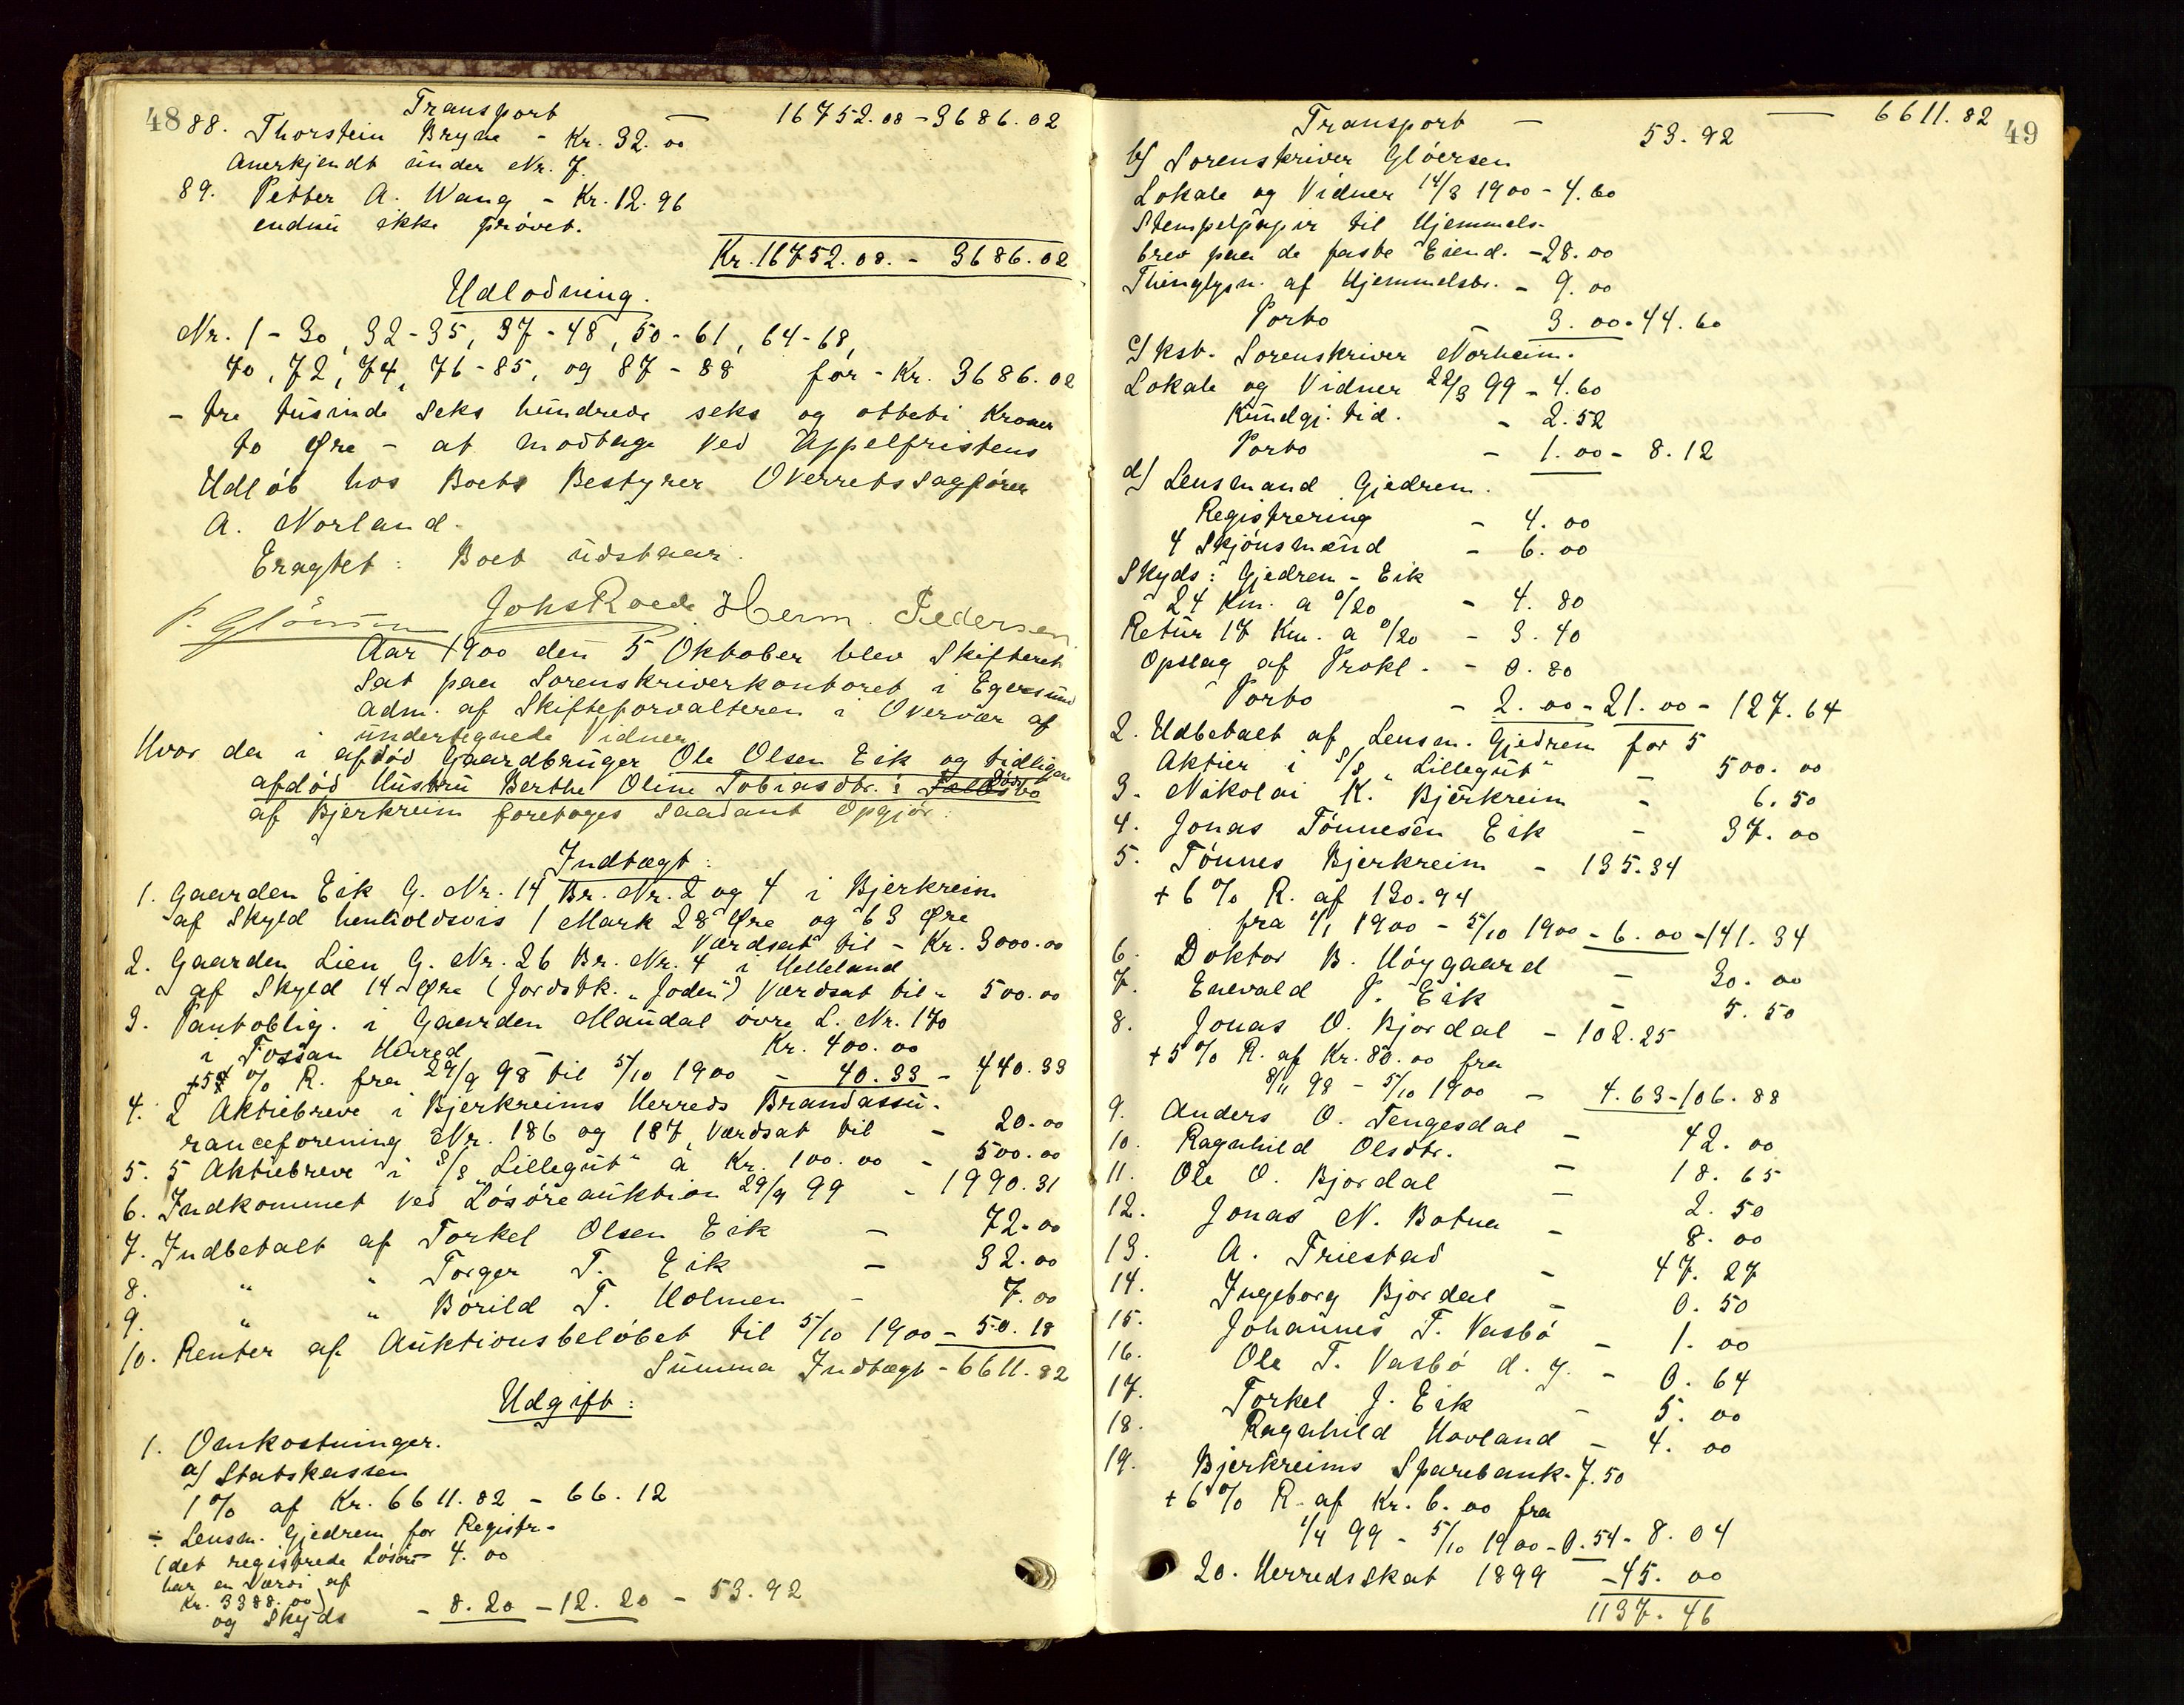 48
Transport — 16752.08 - 3686.02
88. Thorstein Bryne - Kr. 32.00
Anerkjendt under Nr. 7.
89. Petter A. Wang - Kr. 12.96
endnu ikke prøvet.
Kr. 16752.08. - 3686.02
Udlodning.
Nr. 1-30, 32-35, 37-48, 50-61, 64-68,
70, 72, 74, 76-85, og 87-88 for - Kr. 3686.02
- tre tusinde seks hundrede seks og otteti Kroner
to Øre - at modtage ved Appelfristens
Udløb hos Boets Bestyrer Overretssagfører
A. Norland.
Eragtet: Boet udstaar.
Johs Roede. Herm. Pedersen
Aar 1900 den 5 Oktober blev Skifteret
sat paa Sorenskriverkontoret i Egersund
adm. af Skifteforvalteren i Overvær af
undertegnede Vidner
Hvor da i afdød Gaardbruger Ole Olsen Eik og tidligere
afdød Hustru Berthe Oline Tobiasdtr.s Fællesbo
Døds
af Bjerkreim foretoges saadant Opgjør.
Indtægt:
1. Gaarden Eik G. Nr. 14 Br. Nr. 2 og 4 i Bjerkreim
af Skyld henholdsvis 1 Mark 28 Øre og 63 Øre
Værdsat til - Kr. 3000.00
2. Gaarden Lien G. Nr. 26 Br. Nr. 4 i Helleland
af Skyld 14 Øre (Jordstk. "Joden") Værdsat til - 500.00
3. Pantoblig. i Gaarden Maudal øvre L. Nr. 170
i Fossan Herred — Kr. 400.00
+ 5 % R. fra 29/9 98 til 5/10 1900 - 40.33 - 440.33
4. 2 Aktiebreve i Bjerkreims Herreds Brandassu-
ranceforening Nr. 186 og 187, Værdsat til - 20.00
5. 5 Aktiebreve i S/S "Lillegut" á Kr. 100.00 - 500.00
6. Indkommet ved Løsøreauktion 29/9 99 - 1990.31
7. Indbetalt af Torkel Olsen Eik - 72.00
8. " " Torger T. Eik - 32.00
9. " " Børild T. Holmen - 7.00
10. Renter af Auktionsbeløbet til 5/10 1900 - 50.18
Summa Indtægt - 6611.82
Udgift:
1. Omkostninger.
a) Statskassen
1 % af Kr. 6611.82 - 66.12
÷ Lensm. Gjedrem for Registr.-
(det registrede Løsøre - 4.00
har en Værdi af
Kr. 3388.00)
og Skyds - 8.20 - 12.20 - 53.92
49
Transport - 53.92 — 6611.82
b) Sorenskriver Gløersen
Lokale og Vidner 14/3 1900 - 4.60
Stempelpapir til Hjemmels-
brev paa de faste Eiend. - 28.00
Thinglysn. af Hjemmelsbr. - 9.00
Porto - 3.00 - 44.60
c) Kst. Sorenskriver Norheim.
Lokale og Vidner 22/3 99 - 4.60
Kundgj. tid. - 2.52
Porto - 1.00 - 8.12
d) Lensmand Gjedrem.
Registrering - 4.00
4 Skjønsmænd - 6.00
Skyds: Gjedrem - Eik
24 Km. a 0/20 - 4.80
Retur 17 Km. a 0/20 - 3.40
Opslag af Prokl. - 0.80
Porto - 2.00 - 21.00 - 127.64
2. Udbetalt af Lensm. Gjedrem for 5
Aktier i S/S "Lillegut" - 500.00
3. Nikolai K. Bjerkreim - 6.50
4. Jonas Tønnesen Eik - 37.00
5. Tønnes Bjerkreim - 135.34
+ 6 % R. af 130.94
fra 1/1 1900 - 5/10 1900 - 6.00 - 141.34
6. Doktor B. Høygaard - 30.00
7. Enevald P. Eik - 5.50
8. Jonas O. Bjordal - 102.25
+ 5 % R. af Kr. 80.00 fra
8/11 98 - 5/10 1900 - 4.63 - 106.88
9. Anders O. Tengesdal - 42.00
10. Ragnhild Olsdtr. - 18.65
11. Ole O. Bjordal - 2.50
12. Jonas N. Botnen - 8.00
13. A. Friestad - 47.27
14. Ingeborg Bjordal - 0.50
15. Johannes T. Vasbø - 1.00
16. Ole T. Vasbø d. y. - 0.64
17. Torkel J. Eik - 5.00
18. Ragnhild Hovland - 4.00
19. Bjerkreims Sparebank - 7.50
+ 6 % R. af Kr. 6.00 fra
1/4 99 - 5/10 1900 - 0.54 - 8.04
20. Herredsskat 1899 - 45.00
1137.46